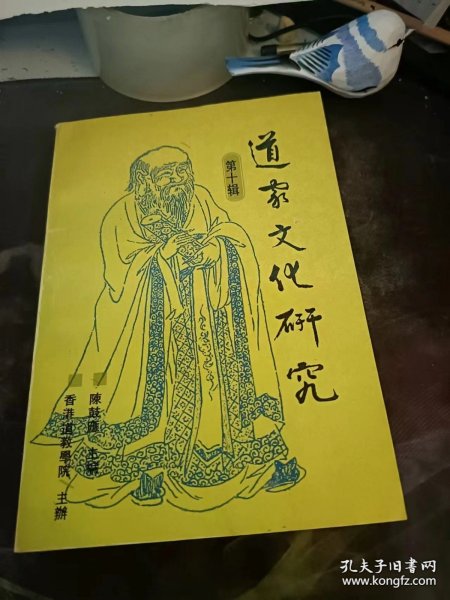 道家文化研究
第十辑
陳鼓應 主編
香港道教學院 主辦
孔夫子旧书网
www.kongfz.com